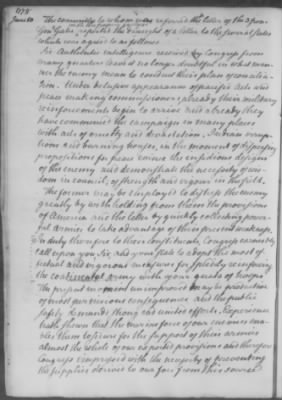 1778
June 10
The committee to whom was referred the letter of the 3 from
Gen Gates reported the draught of a letter to the several states
which was agreed to as follows
Sir Authentic intelligence received by Congress from
many quarters leaves it no longer doubtful in what man-
ner the enemy mean to conduct their plan of concilia-
tion. Under delusive appearances of pacific Acts and
peace making commissioners already their military
reinforcements begin to arrive and already they
have commenced the campaign in many places
with acts of cruelty and devastation. Indian irrup-
tions and burning houses, in the moment of dispersing
propositions for peace evince the insidious designs
of the enemy and demonstrate the necessity of wis-
dom in council, of strength and vigour in the field.
The former may be employed to distress the enemy
greatly by with holding from them the provisions
of America and the latter by quickly collecting power-
ful armies to take advantage of their present weakness.
In duty therefore to their constituents, Congress earnestly
call upon you Sir and your State to adopt the most ef-
fectual and vigorous measures for speedily reinforcing
the continental army with your quota of troops
The present moment unimproved may be productive
of most pernicious consequences and the public
safety demands strong and united efforts. Experience
hath shewn that the marine force of our enemies ena-
bles them to secure for the support of their armies
almost the whole of our exported provisions and therefore
Congress impressed with the necessity of preventing
the supplies derived to our foes from this source